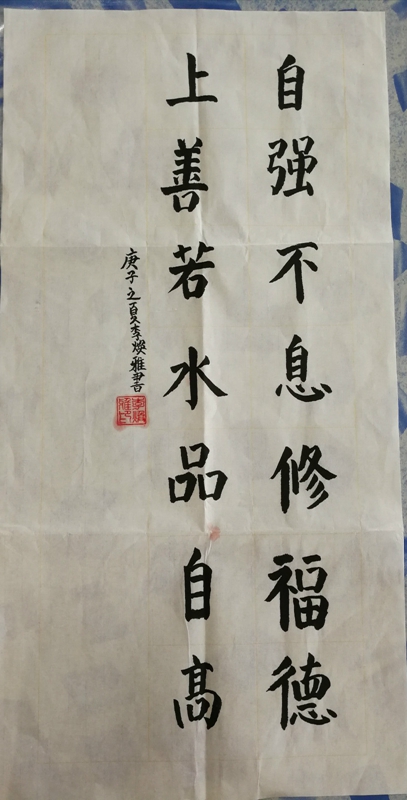 自强不息修福德
上善若水品自高
庚子之夏李焕雅書